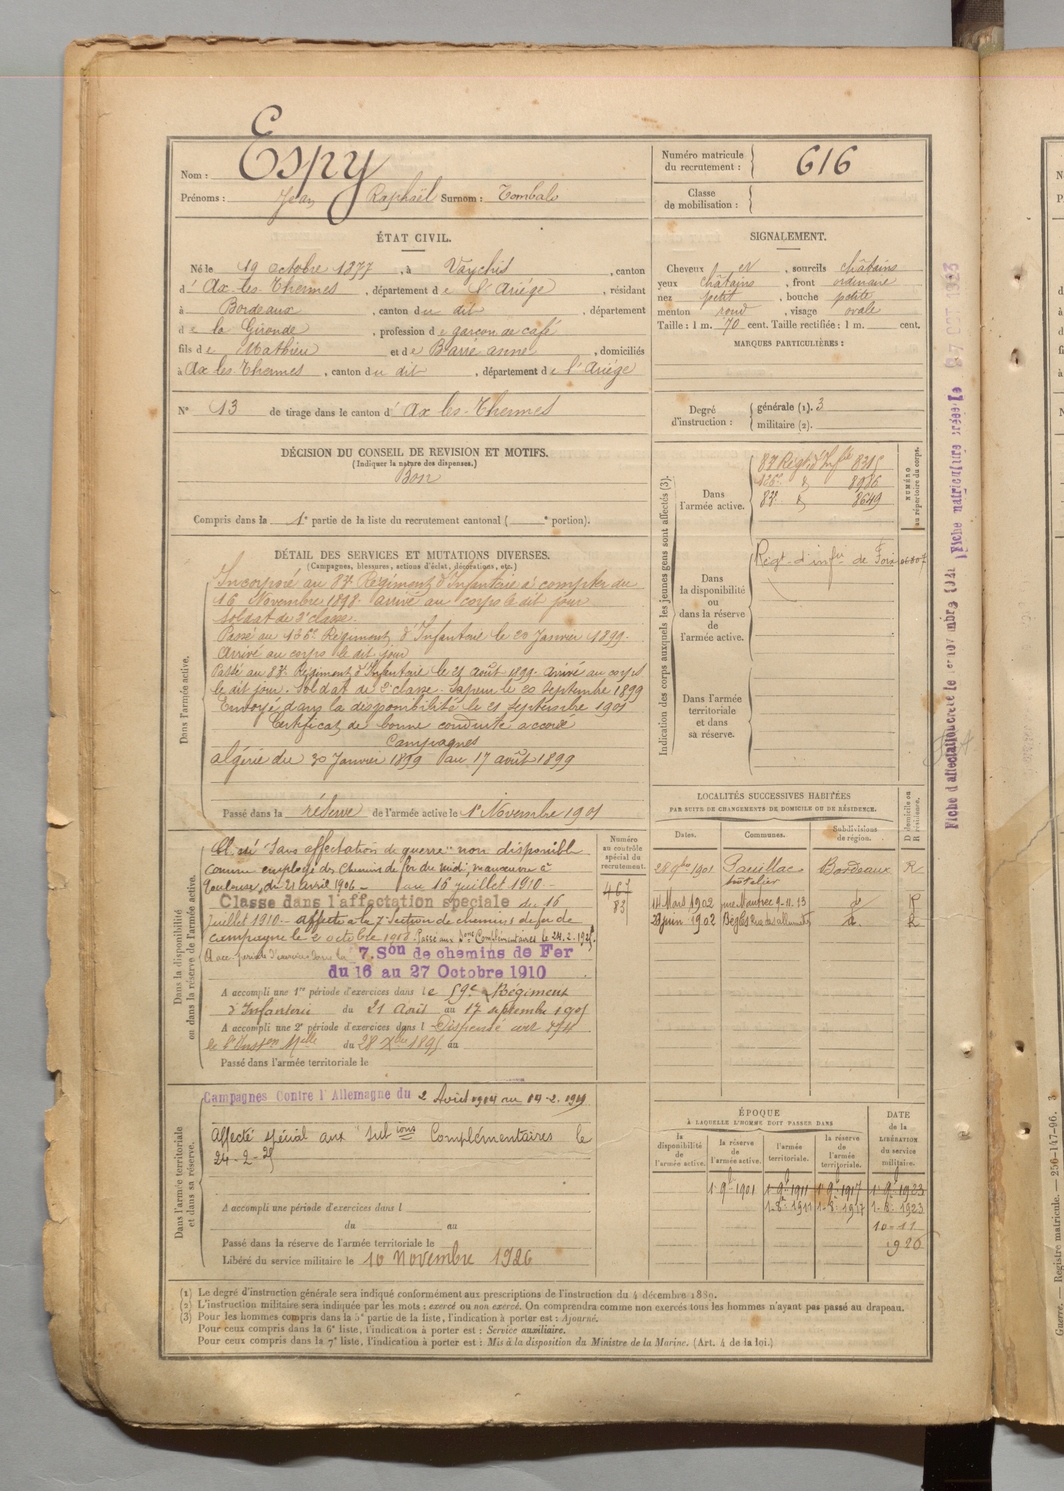 Nom : Espy
Prénoms : Jean Raphaël Surnom : Tombalo
Numéro matricule du recrutement : 616
Classe de mobilisation :
ÉTAT CIVIL.
Né le 19 octobre 1877, à Vaychis, canton
d' Ax les Thermes, département de l'Ariége, résidant
à Bordeaux, canton du dit, département
de la Gironde, profession de garçon de café
fils de Mathieu et de Barré , domiciliés
à Ax les Thermes, canton du dit, département de l'Ariége
N° 13 de tirage dans le canton d' Ax les Thermes
SIGNALEMENT.
Cheveux et, sourcils châtains
yeux châtains, front ordinaire
nez petit, bouche petite
menton rond, visage ovale
Taille : 1 m. 70 cent. Taille rectifiée : 1 m. cent.
MARQUES PARTICULIÈRES :
Degré d'instruction : générale (1). 3
militaire (2).
DÉCISION DU CONSEIL DE REVISION ET MOTIFS.
(Indiquer la nature des dispenses.)
Bon
Compris dans la 1e partie de la liste du recrutement cantonal ( e portion).
DÉTAIL DES SERVICES ET MUTATIONS DIVERSES.
(Campagnes, blessures, actions d'éclat, décorations, etc.)
Dans l'armée active.
Incorporé au 83e Régiment d'Infanterie à compter du
16 Novembre 1898. arrivé au corps le dit jour
soldat de 2e classe.
Passé au 126e Régiment d'Infanterie le 20 Janvier 1899.
Arrivé au corps le dit jour
Passé au 83e Régiment d'Infanterie le 21 août 1899. arrivé au corps
le dit jour. Soldat de 2e classe. Sapeur le 20 Septembre 1899
Envoyé dans la disponibilité le 21 Septembre 1901
Certificat de bonne conduite accordé
Campagnes
Algérie du 20 Janvier 1899 au 17 août 1899
Passé dans la réserve de l'armée active le 1er Novembre 1901
Indication des corps auxquels les jeunes gens sont affectés (3).
NUMÉRO au répertoire du corps.
Dans l'armée active.
83e Régt d'Infie 8315
126e d 8936
83e d 8649
Dans la disponibilité ou dans la réserve de l'armée active.
Régt d'infie de Foix
Dans l'armée territoriale et dans sa réserve.
LOCALITÉS SUCCESSIVES HABITÉES
PAR SUITE DE CHANGEMENTS DE DOMICILE OU DE RÉSIDENCE.
Dates. Communes. Subdivisions de région. D domicile ou R résidence.
28 9bre 1901 Pauillac Bordeaux R
hôtelier
14 Mars 1902
23 juin 1902 Bègles d. R
Dans la disponibilité ou dans la réserve de l'armée active.
Numéro au contrôle spécial du recrutement.
467
83
Classé sans affectation de guerre non disponible
comme employé des Chemins de fer du midi, manœuvre à
Toulouse, du 21 avril 1906 - au 16 juillet 1910 -
Classé dans l'affectation spéciale du 16
Juillet 1910 - affecté à la 7e Section de chemins de fer de
campagne le 2 octobre
7. Son de chemins de Fer
du 16 au 27 Octobre 1910
A accompli une 1re période d'exercices dans le 59e Régiment
d'Infanterie du 21 Août au 17 septembre 1905
A accompli une 2e période d'exercices dans l Dispensé
Passé dans l'armée territoriale le
Dans l'armée territoriale et dans sa réserve.
Campagnes Contre l'Allemagne du 2 Août 1914 au 14-2-1919
Affecté spécial aux Subions Complémentaires le
24-2-25
A accompli une période d'exercices dans l
du au
Passé dans la réserve de l'armée territoriale le
Libéré du service militaire le 10 Novembre 1926
ÉPOQUE
À LAQUELLE L'HOMME DOIT PASSER DANS
la disponibilité de l'armée active. la réserve de l'armée active. l'armée territoriale. la réserve de l'armée territoriale. DATE DE LA LIBÉRATION du service militaire.
1er 9bre 1901 1er 9bre 1911 1er 9bre 1917 1er 9bre 1923
1-8e 1911 1-8e 1917 1-8e 1923
10-11
1926
(1) Le degré d'instruction générale sera indiqué conformément aux prescriptions de l'instruction du 4 décembre 1889.
(2) L'instruction militaire sera indiquée par les mots : exercé ou non exercé. On comprendra comme non exercés tous les hommes n'ayant pas passé au drapeau.
(3) Pour les hommes compris dans la 5e partie de la liste, l'indication à porter est : Ajourné.
Pour ceux compris dans la 6e liste, l'indication à porter est : Service auxiliaire.
Pour ceux compris dans la 7e liste, l'indication à porter est : Mis à la disposition du Ministre de la Marine. (Art. 4 de la loi.)
Guerre. — Registre matricule. — 256-147-96.